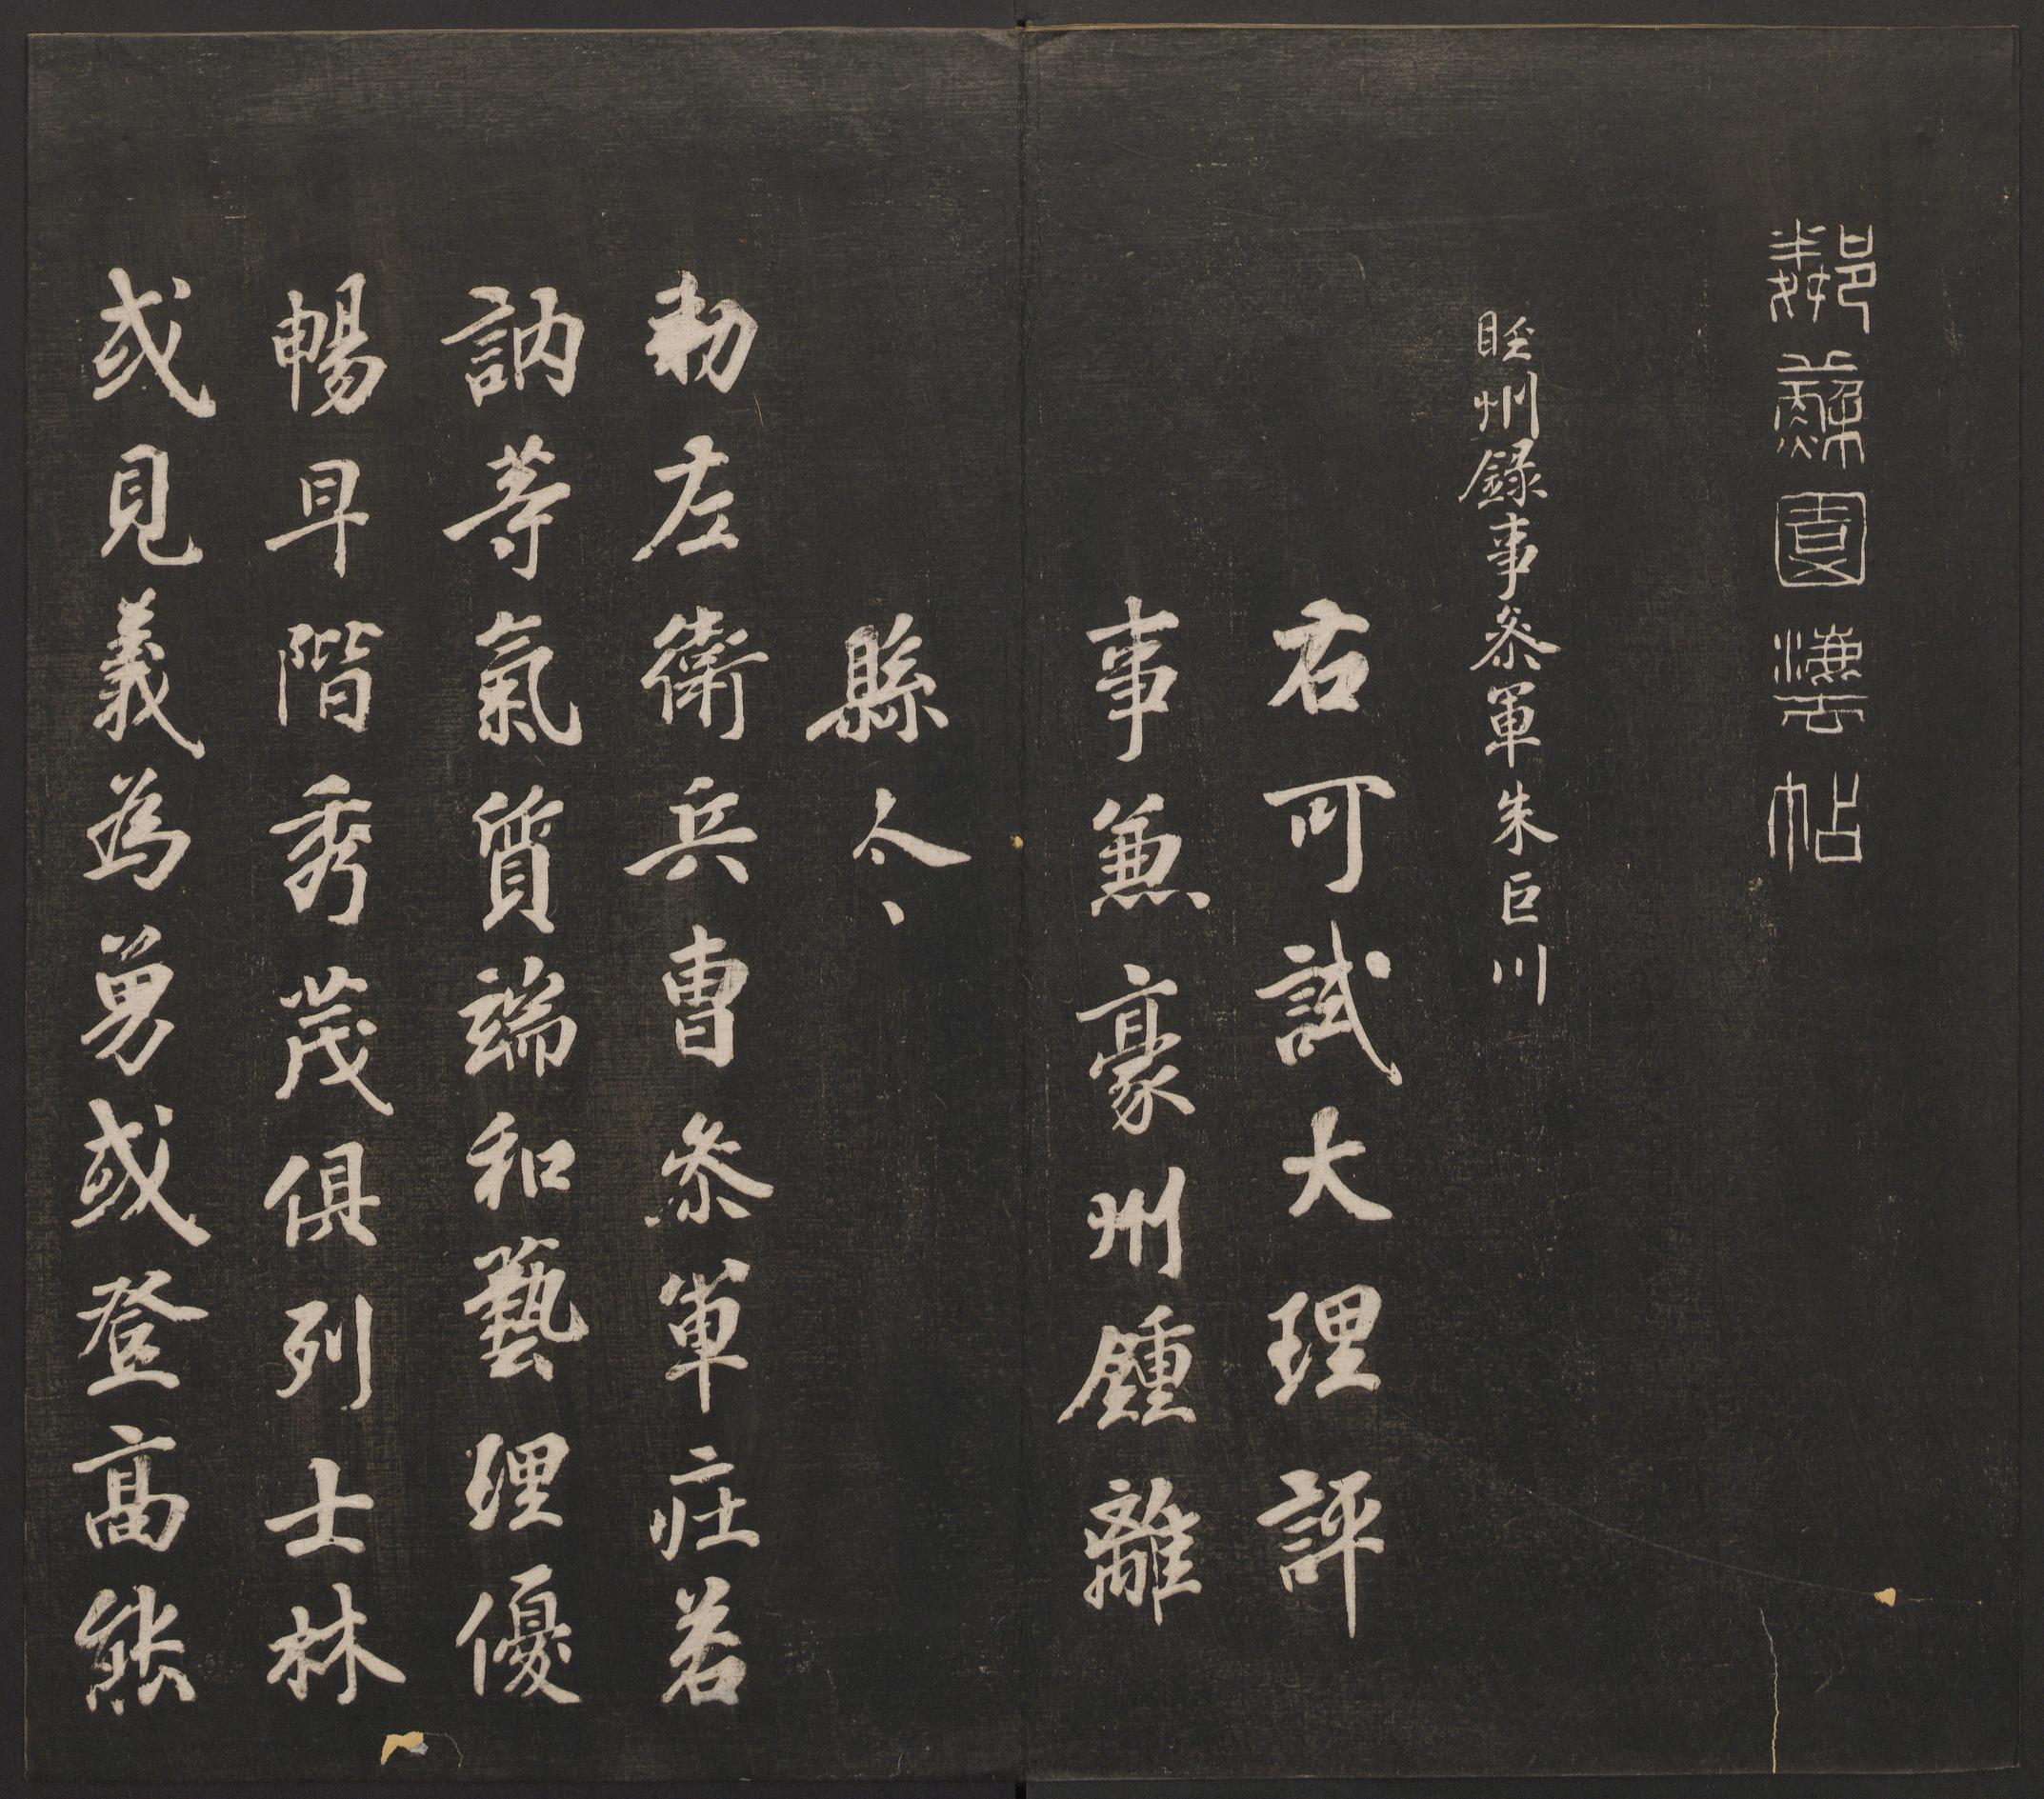 鄰蘇園灋帖
睦州錄事參軍朱巨川
右可試大理評
事兼豪州鍾離
縣令
勅左衛兵曹參軍莊若
訥等氣質端和藝理優
暢早階秀茂俱列士林
或見義為勇或登高能